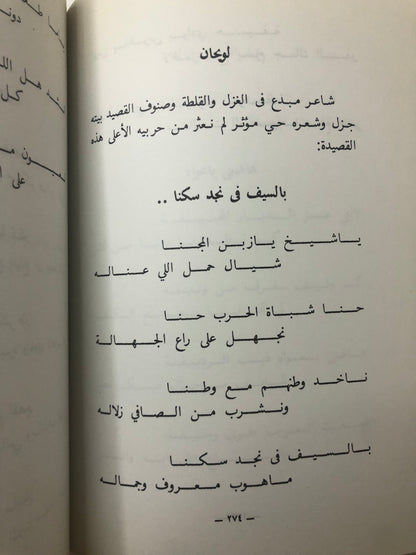 لويحان
شاعر مبدع فى الغزل والقلطة وصنوف القصيد بيته
جزل وشعره حي مؤثر لم نعثر من حربيه الأعلى هذه
القصيدة:
بالسيف فى نجد سكنا ..
ياشيخ يازبن المجنا
شيال حمل اللي عناله
حنا شباة الحرب حنا
نجهل على راع الجهالة
ناخد وطنهم مع وطنا
ونشرب من الصافي زلاله
بالسيف فى نجد سكنا
ماهوب معروف وجماله
— ٢٧٤ —